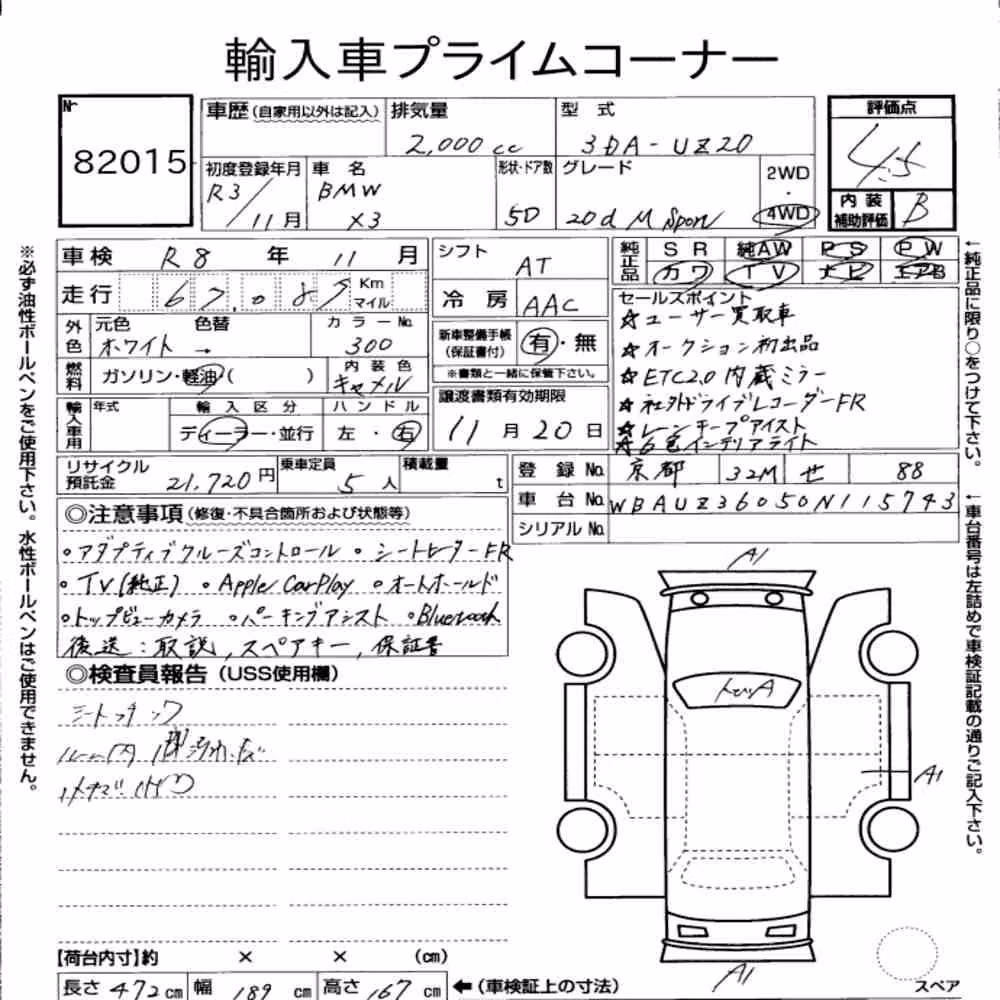 輸入車プライムコーナー
№
82015
車歴(自家用以外は記入)
排気量
2,000 cc
型式
3DA-UZ20
評価点
4.5
初度登録年月
R3/11月
車名
BMW
X3
形状・ドア数
5D
グレード
20d M Sport
2WD
・
4WD
内装
補助評価
B
車検 R8 年 11 月
走行 67.085 Km
マイル
外色
元色 色替
ホワイト →
カラーNo.
300
燃料
ガソリン・軽油( )
内装色
キャメル
輸入車用
年式
輸入区分
ディーラー・並行
ハンドル
左・右
シフト
AT
冷房
AAC
新車整備手帳
(保証書付)
有・無
※書類と一緒に保管下さい。
譲渡書類有効期限
11月20日
純正品
SR 純AW PS PW
カワ TV ナビ エアB
セールスポイント
☆ユーザー買取車
☆オークション初出品
☆ETC2.0内蔵ミラー
☆社外ドライブレコーダーFR
☆レーンキープアシスト
☆6色インテリアライト
リサイクル
預託金 21,720円
乗車定員
5人
積載量
t
登録No. 京都 32M せ 88
車台No. WBAUZ36050N115743
シリアルNo.
◎注意事項(修復・不具合箇所および状態等)
・アダプティブクルーズコントロール ・シートヒーターFR
・TV(純正) ・Apple CarPlay ・オートホールド
・トップビューカメラ ・パーキングアシスト ・Bluetooth
後送:取説,スペアキー,保証書
◎検査員報告(USS使用欄)
A1
A1
A1
【荷台内寸】約 × × (cm)
長さ 472cm 幅 189 cm 高さ 167 cm ←(車検証上の寸法)
スペア
※必ず油性ボールペンをご使用下さい。水性ボールペンはご使用できません。
←純正品に限り○をつけて下さい。
←車台番号は左詰めで車検証記載の通りご記入下さい。